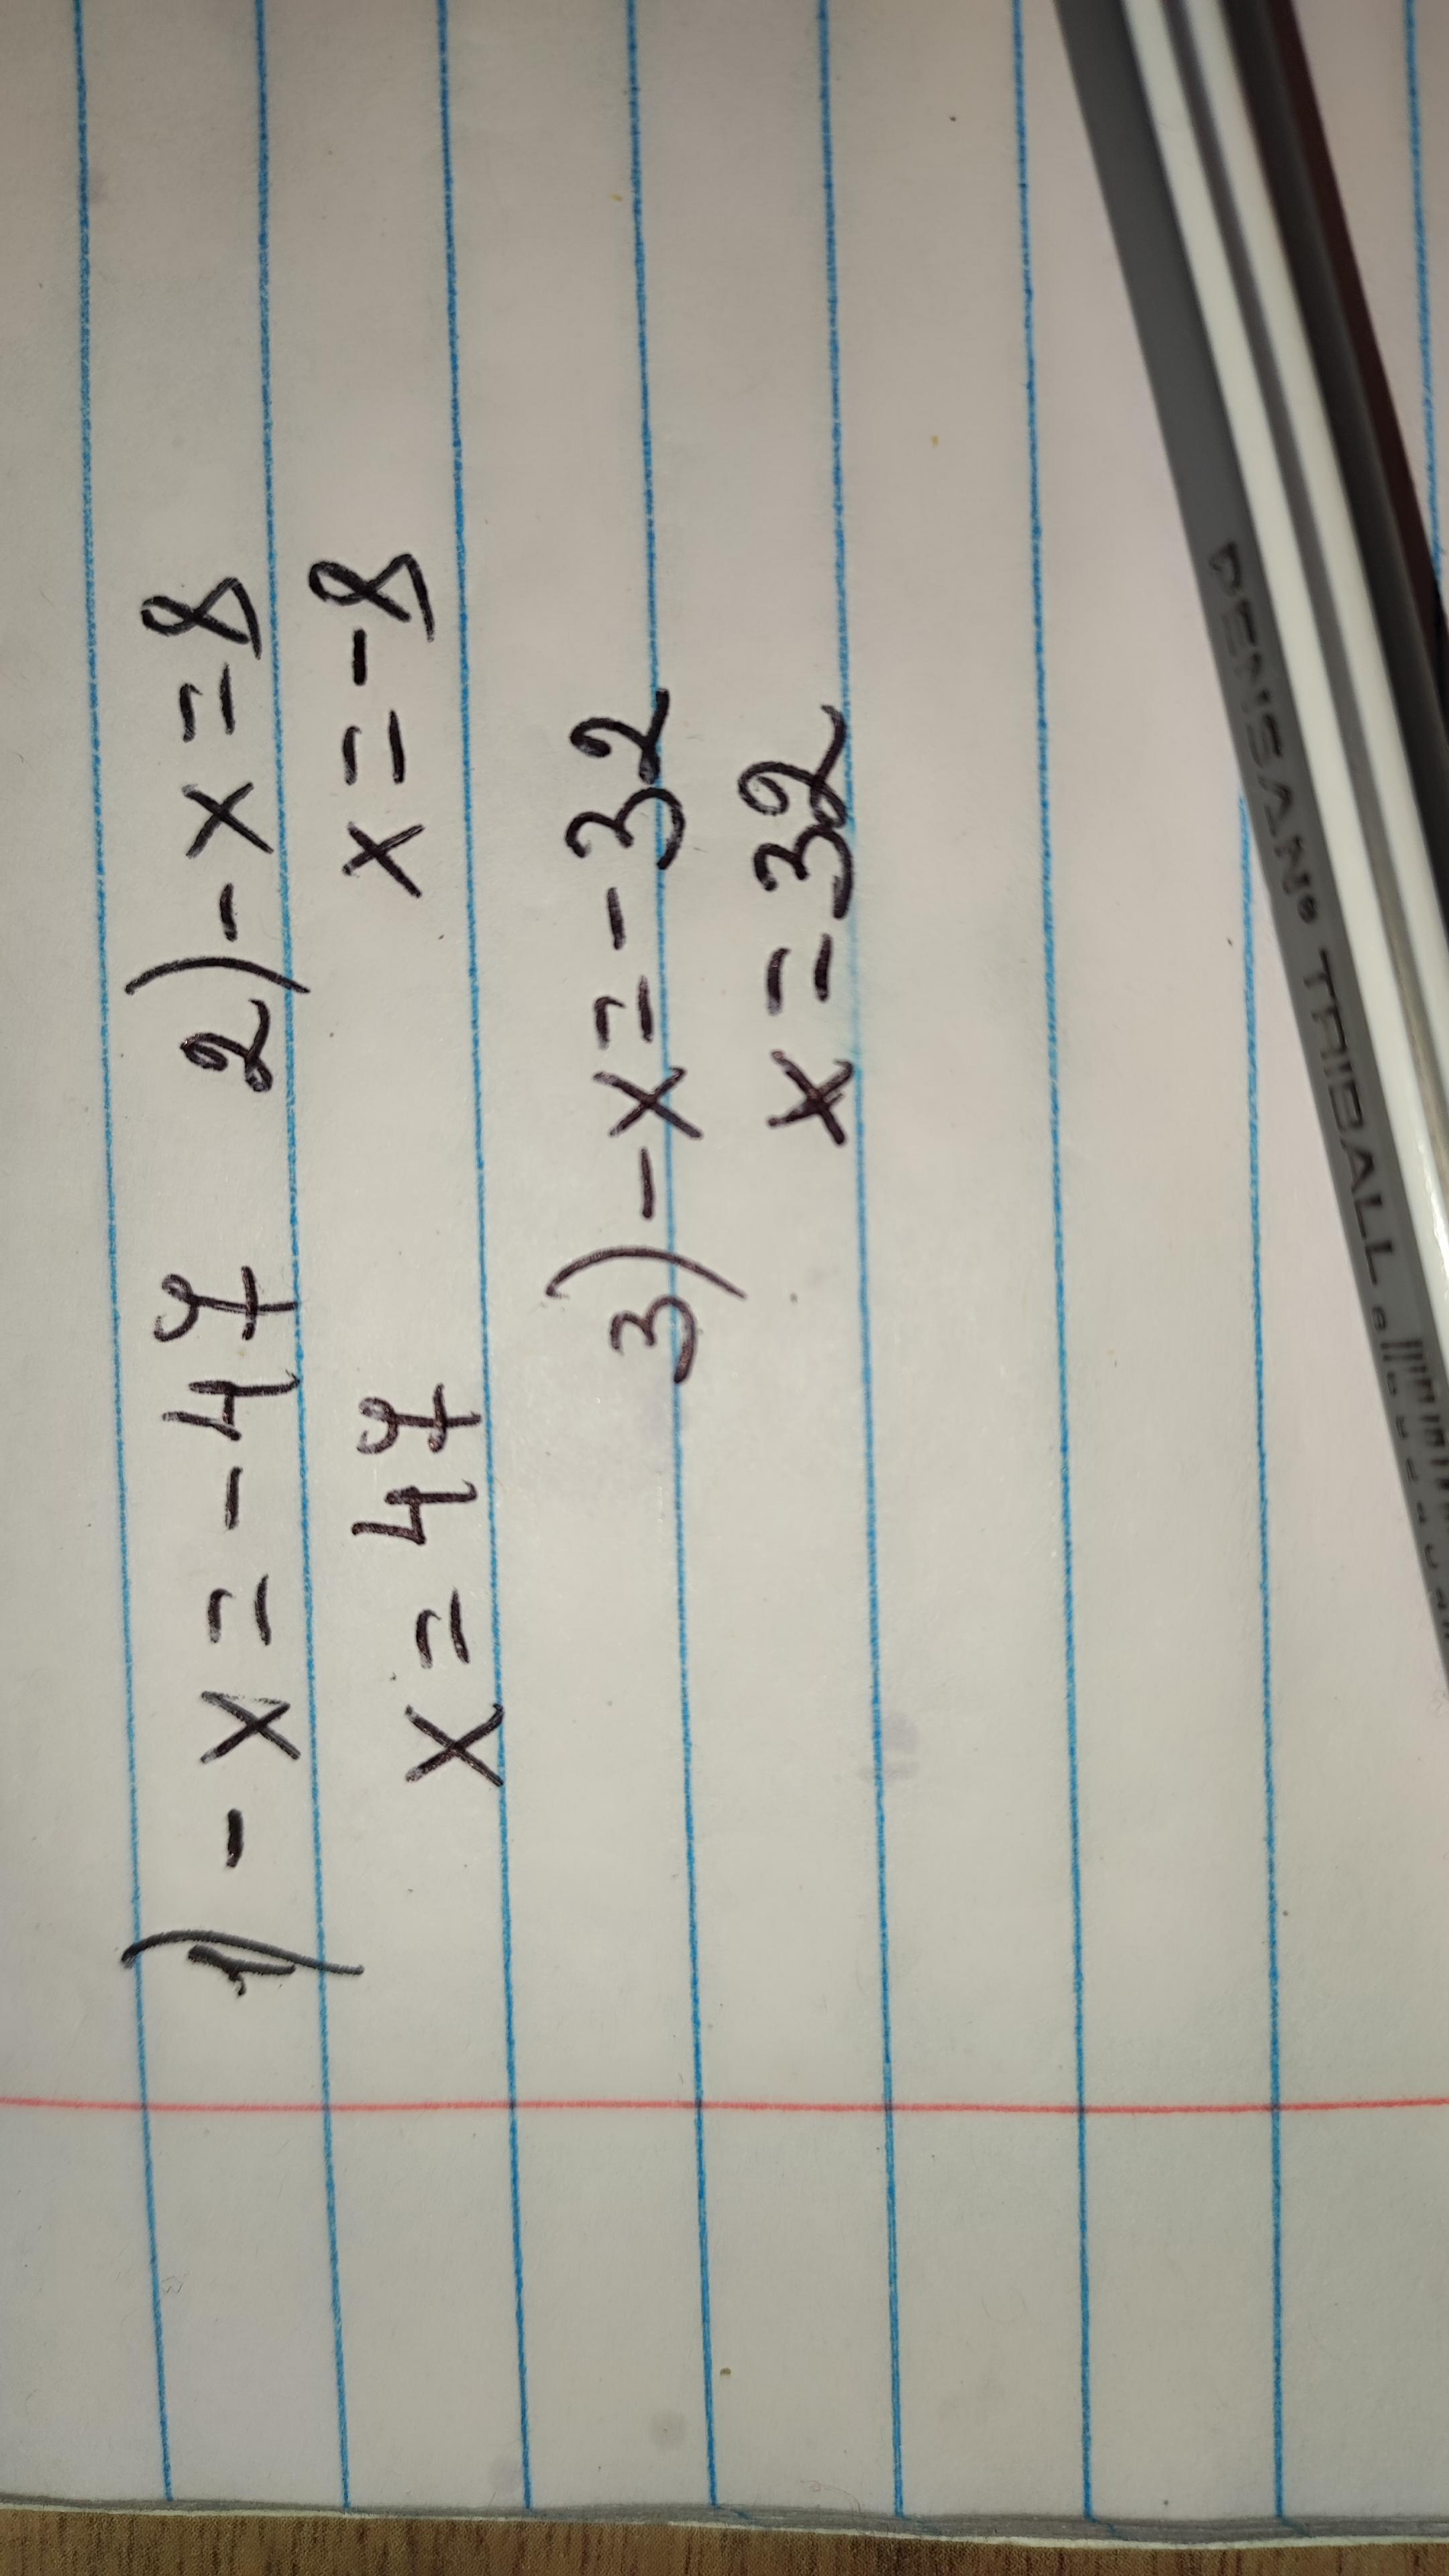 1) -x = -47 2) -x = 8
x = 47 x = -8
3) -x = -32
x = 32
PENSAN® TRIBALL